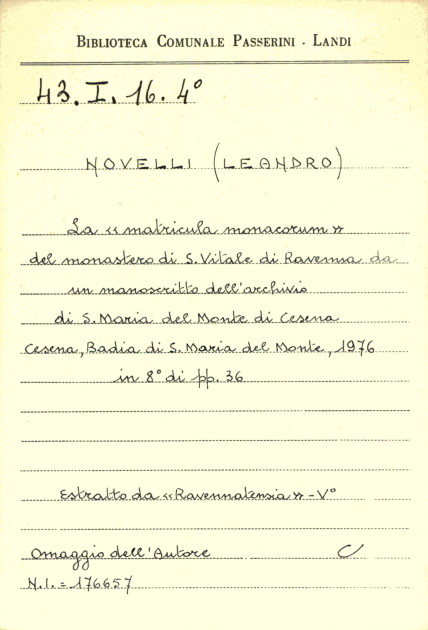 BIBLIOTECA COMUNALE PASSERINI - LANDI
43. I. 16. 4°
NOVELLI (LEANDRO)
La « matricula monacorum »
del monastero di S. Vitale di Ravenna da
un manoscritto dell'archivio
di S. Maria del Monte di Cesena
Cesena, Badia di S. Maria del Monte, 1976
in 8° di pp. 36
Estratto da «Ravennatensia» - V°
Omaggio dell'Autore C
N.I. = 176657